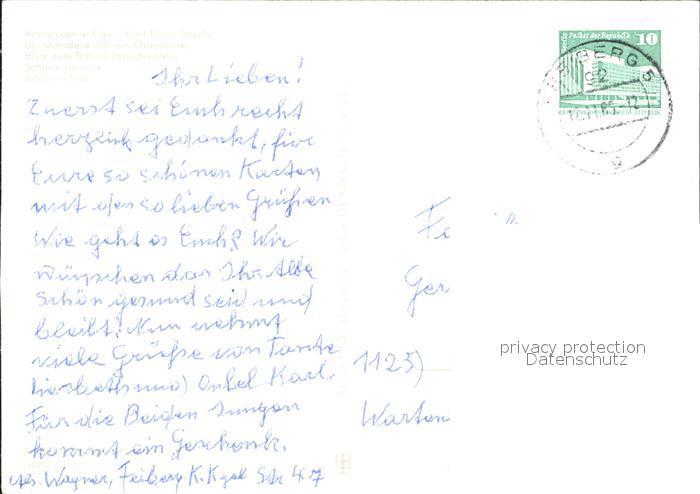 Renaissance-Erker, Karl-Marx-Straße
Brunnendenkmal am Obermarkt
Blick zum Schloß Freudenstein
Schwanenteich
Ihr Lieben!
Zuerst sei Euch recht
herzlich gedankt, für
Eure so schönen Karten
mit den so lieben Grüßen
Wie geht es Euch? Wir
wünschen das Ihr Alle
schön gesund seid und
bleibt! Nun nehmt
viele Grüße von Tante
Liesbeth und Onkel Karl.
Für die Beiden Jungen
kommt ein Geschenk.
Abs. Wagner, Freiberg K. Kgel Str 47
Berlin Palast der Republik 10
BERG 5
92
12.11.85-12
g
Fa
Ger
1125)
Warten
privacy protection
Datenschutz